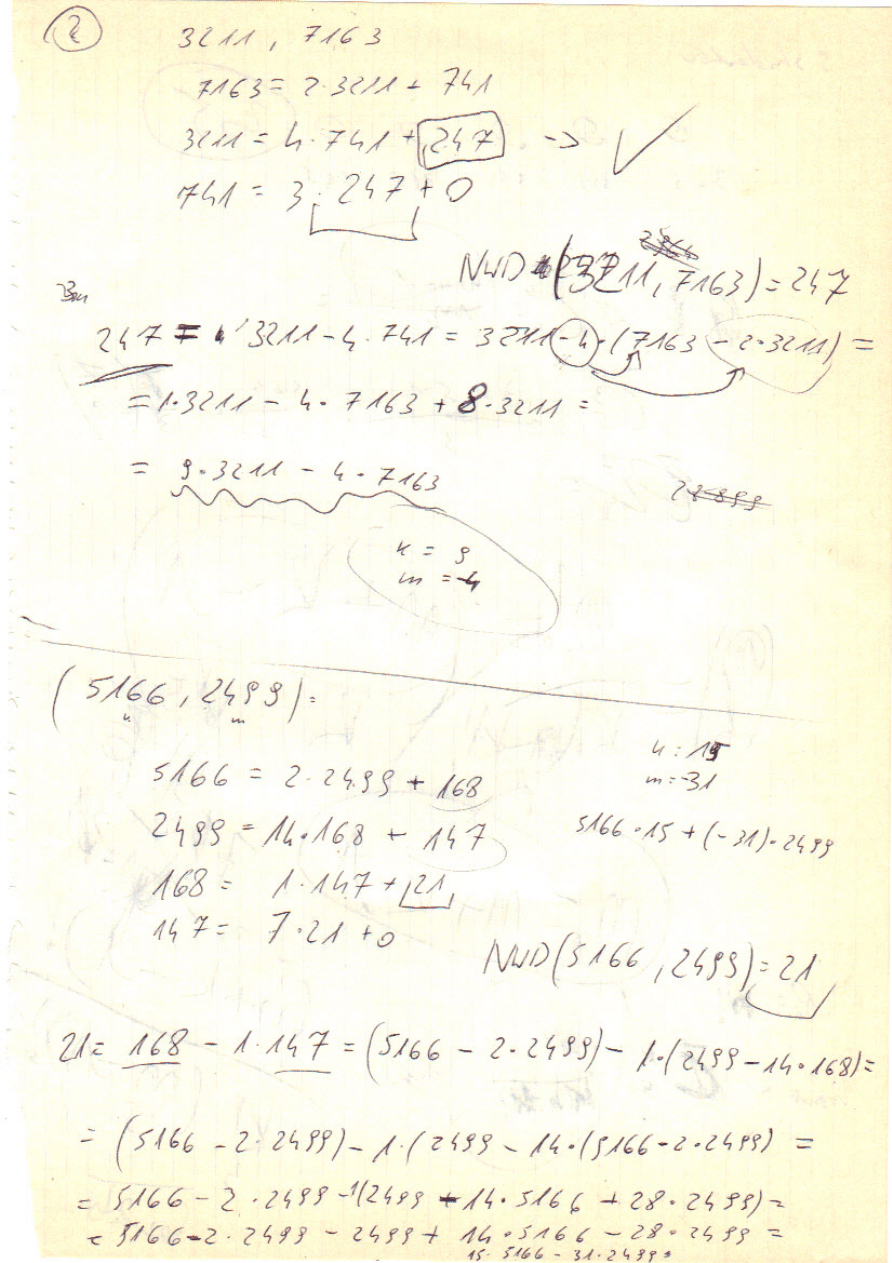 2
3211, 7163
7163 = 2·3211 + 741
3211 = 4·741 + 247 -> ✓
741 = 3·247 + 0
NWD (3211, 7163) = 247
247 = 3211 - 4·741 = 3211 - 4·(7163 - 2·3211) =
= 1·3211 - 4·7163 + 8·3211 =
= 9·3211 - 4·7163
n = 9
m = -4
(5166, 2499) =
n m
5166 = 2·2499 + 168
2499 = 14·168 + 147
168 = 1·147 + 21
147 = 7·21 + 0
n = 15
m = -31
5166·15 + (-31)·2499
NWD(5166, 2499) = 21
21 = 168 - 1·147 = (5166 - 2·2499) - 1·(2499 - 14·168) =
= (5166 - 2·2499) - 1·(2499 - 14·(5166 - 2·2499) =
= 5166 - 2·2499 - 1(2499 - 14·5166 + 28·2499) =
= 5166 - 2·2499 - 2499 + 14·5166 - 28·2499 =
15·5166 - 31·2499 =